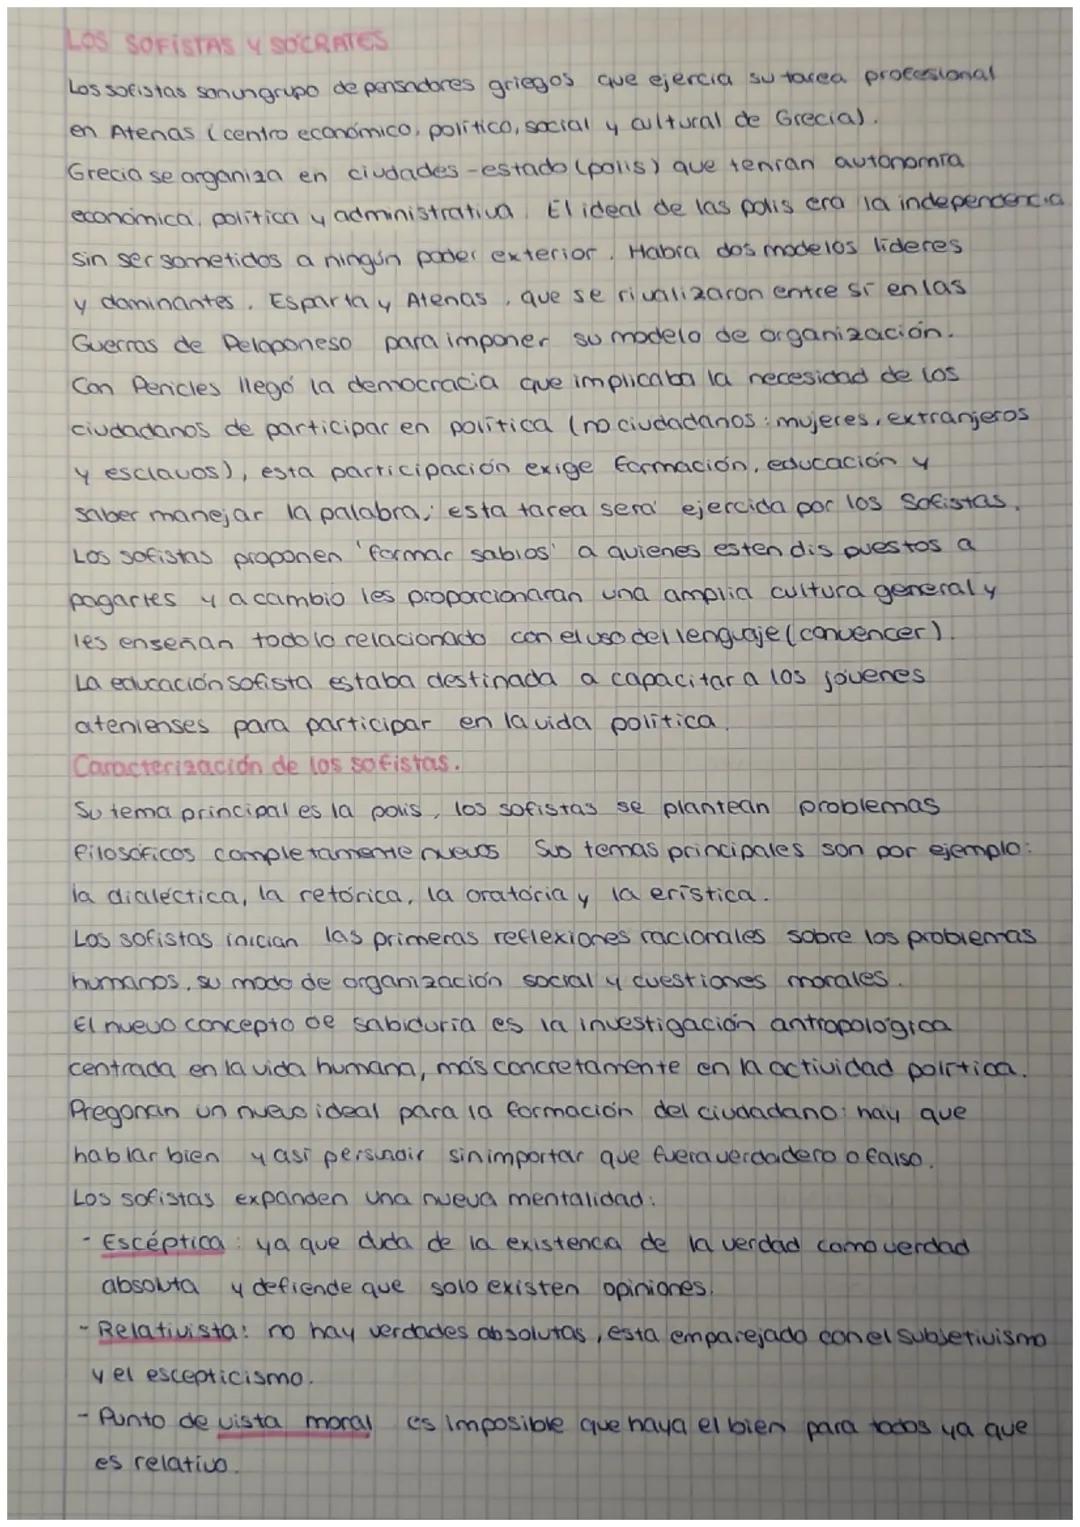 LOS SOFISTAS Y SÓCRATES
Los sofistas son un grupo de pensadores griegos que ejercía su tarea profesional
en Atenas (centro económico, político, social y cultural de Grecia).
Grecia se organiza en ciudades-estado (polis) que tenían autonomía
económica, política y administrativa. El ideal de las polis era la independencia
sin ser sometidos a ningún poder exterior. Había dos modelos líderes
y dominantes. Esparta y Atenas, que se rivalizaron entre sí en las
Guerras de Peloponeso para imponer su modelo de organización.
Con Pericles llegó la democracia que implicaba la necesidad de los
ciudadanos de participar en política (no ciudadanos: mujeres, extranjeros
y esclavos), esta participación exige formación, educación y
saber manejar la palabra; esta tarea será ejercida por los Sofistas.
Los sofistas proponen 'formar sabios' a quienes esten dispuestos a
pagarles y a cambio les proporcionaran una amplia cultura general y
les enseñan todo lo relacionado con el uso del lenguaje (convencer).
La educación sofista estaba destinada a capacitar a los jóvenes
atenienses para participar en la vida política.
Caracterización de los sofistas.
Su tema principal es la polis, los sofistas se plantean problemas
filosóficos completamente nuevos. Sus temas principales son por ejemplo:
la dialéctica, la retórica, la oratoria y la erística.
Los sofistas inician las primeras reflexiones racionales sobre los problemas
humanos, su modo de organización social y cuestiones morales.
El nuevo concepto de sabiduría es la investigación antropológica
centrada en la vida humana, más concretamente en la actividad política.
Pregonan un nuevo ideal para la formación del ciudadano: hay que
hablar bien y así persuadir sin importar que fuera verdadero o falso.
Los sofistas expanden una nueva mentalidad:
- Escéptica: ya que duda de la existencia de la verdad como verdad
absoluta y defiende que solo existen opiniones.
- Relativista: no hay verdades absolutas, esta emparejado con el subjetivismo
y el escepticismo.
- Punto de vista moral es imposible que haya el bien para todos ya que
es relativo.